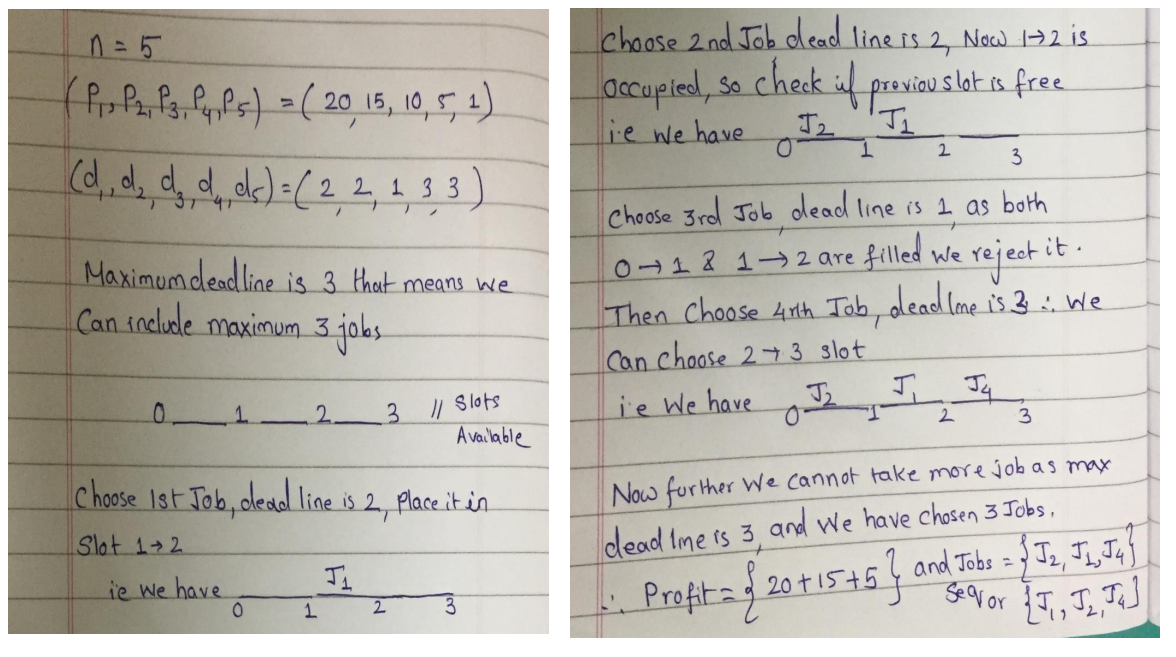 n = 5
(P1, P2, P3, P4, P5) = (20, 15, 10, 5, 1)
(d1, d2, d3, d4, d5) = (2, 2, 1, 3, 3)
Maximum deadline is 3 that means we
Can include maximum 3 jobs
0 ___ 1 ___ 2 ___ 3 // Slots
Available
Choose 1st Job, dead line is 2, place it in
Slot 1→2
J1
i.e We have
0 1 2 3
Choose 2nd Job dead line is 2, Now 1→2 is
occupied, so check if previou slot is free
J2 J1
i.e We have
0 1 2 3
Choose 3rd Job, dead line is 1, as both
0→1 & 1→2 are filled We reject it.
Then Choose 4rth Job, dead line is 3 ∴ We
Can choose 2→3 slot
J2 J1 J4
i.e We have
0 1 2 3
Now further We cannot take more job as max
dead line is 3, and We have chosen 3 Jobs.
∴ Profit = {20+15+5} and Jobs = {J2, J1, J4}
Seq or {J1, J2, J4}